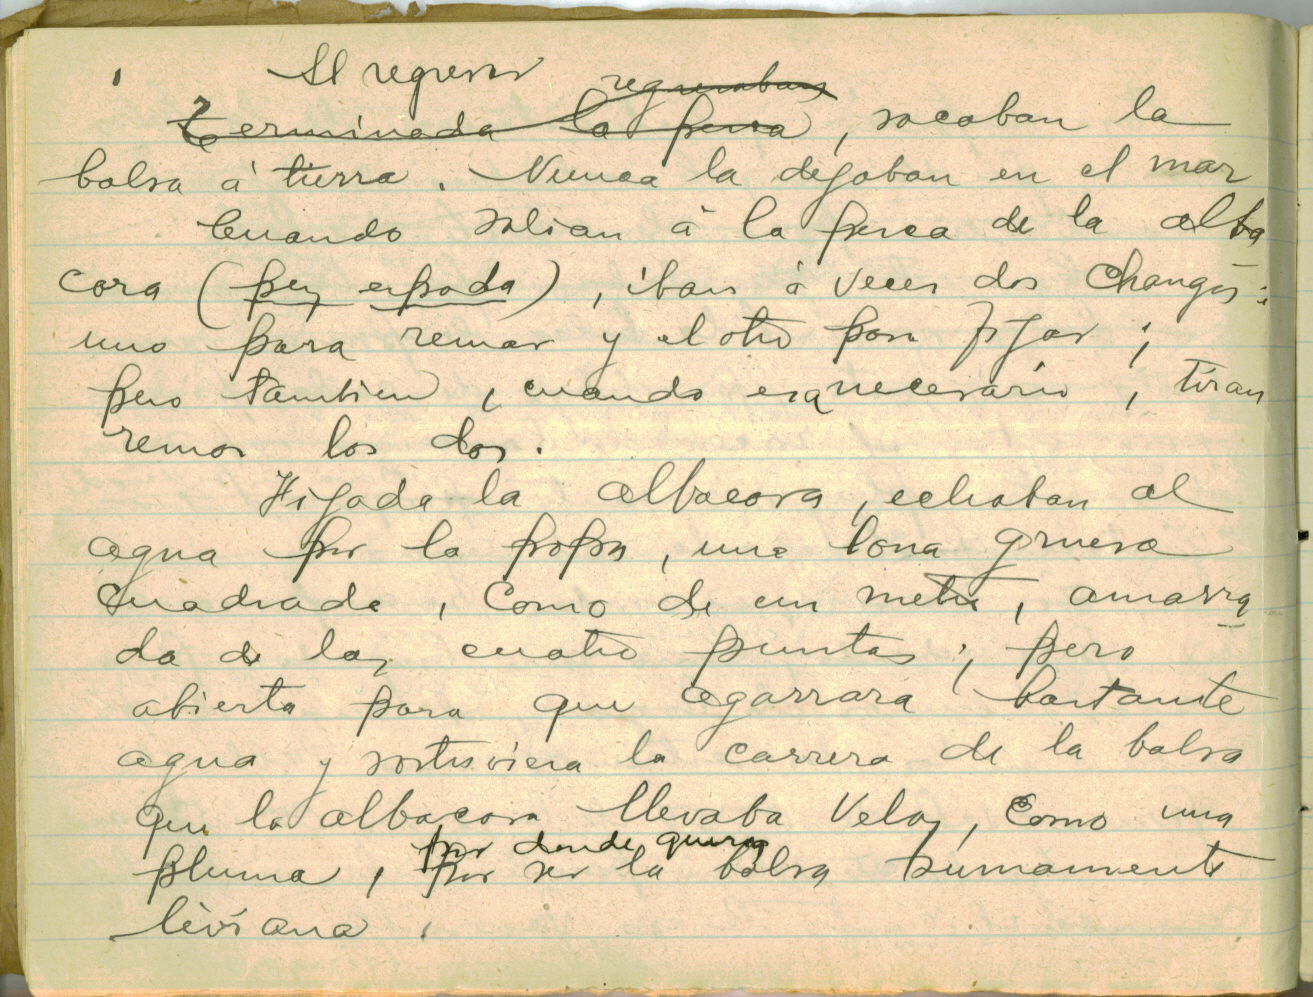 Al regresar regresaban
Terminada la pesca, sacaban la
balsa á tierra. Nunca la dejaban en el mar
Cuando salian á la pesca de la alba
cora (pez espada), iban á veces dos Changos:
uno para remar y el otro para fijar;
pero tambien, cuando era necesario, tiran
remos los dos.
Fijada la albacora, echaban al
agua por la popa, una lona gruesa
cuadrada, como de un metro, amarra
da de las cuatro puntas; pero
abierta para que agarrara bastante
agua y sostuviera la carrera de la balsa
que la albacora llevaba veloz, como una
por donde quiera
pluma, por ser la balsa súmamente
liviana.